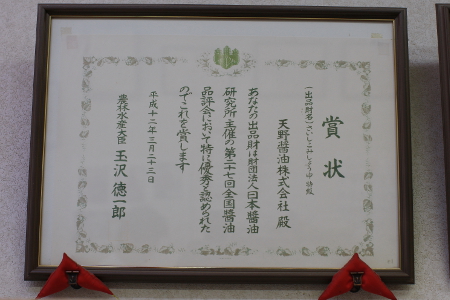 賞状
(出品財名)さいしこみしょうゆ特級
天野醬油株式会社 殿
あなたの出品財は財団法人日本醬油
研究所主催の第二十七回全国醬油
品評会において特に優秀と認められた
のでこれを賞します
平成十二年三月二十三日
農林水産大臣 玉沢徳一郎